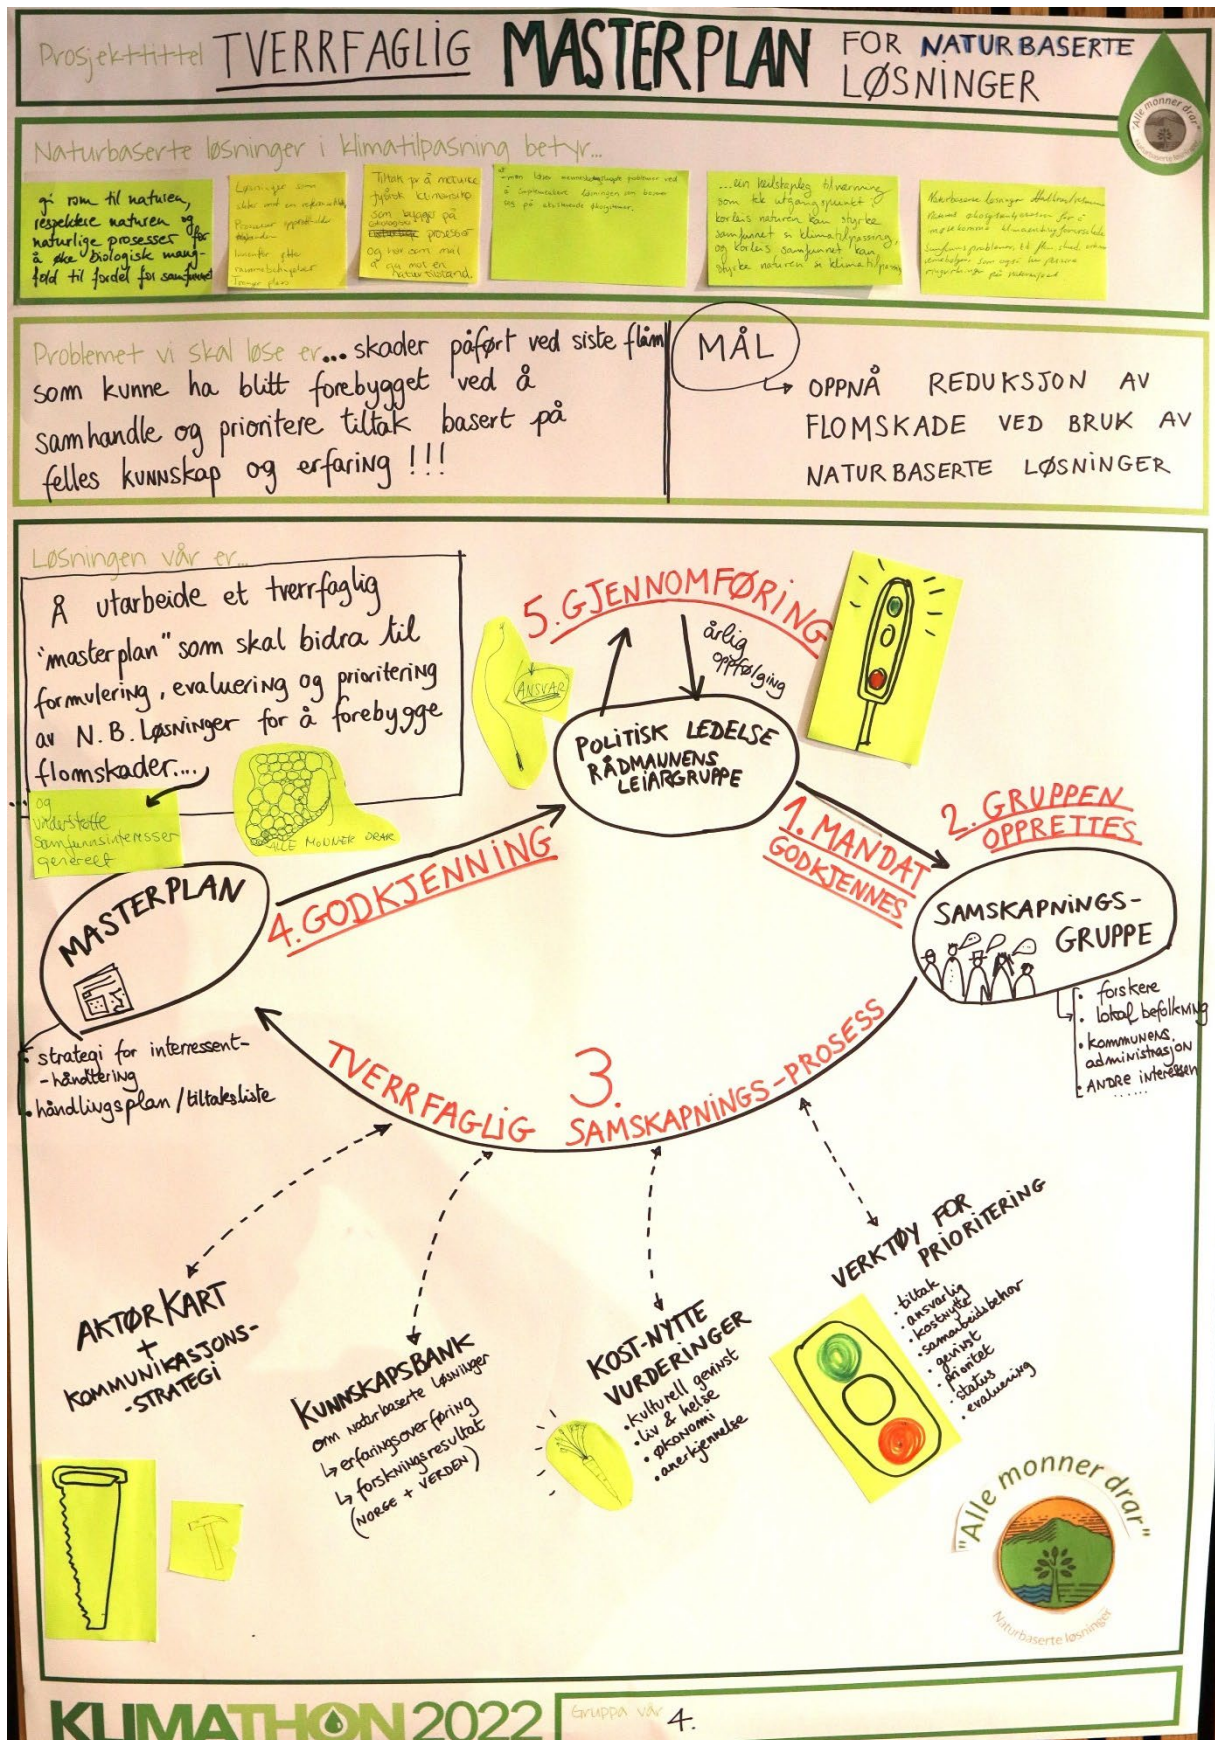 Prosjekttittel TVERRFAGLIG MASTERPLAN FOR NATURBASERTE
LØSNINGER
"Alle monner drar"
Naturbaserte løsninger
Naturbaserte løsninger i klimatilpasning betyr...
gi rom til naturen,
respektere naturen og
naturlige prosesser for
å øke biologisk mang-
fold til fordel for samfunnet
Løsninger som
Prosesser opprettholder
Trenger plass
Tiltak for å motvirke
fysisk klimarisiko
som bygger på
naturlige prosesser
Og har som mål
å gå mot en
naturtilstand.
løser menneskeskapte problemer ved
å implementere løsninger som baserer
seg på eksisterende økosystemer.
...ein heilskapleg tilnærming
som tek utgangspunkt i
korleis naturen kan styrke
samfunnet si klimatilpassing,
og korleis samfunnet kan
styrke naturen si klimatilpassing
Naturbaserte løsninger
Problemet vi skal løse er... skader påført ved siste flom
som kunne ha blitt forebygget ved å
samhandle og prioritere tiltak basert på
felles kunnskap og erfaring !!!
MÅL
OPPNÅ REDUKSJON AV
FLOMSKADE VED BRUK AV
NATURBASERTE LØSNINGER
Løsningen vår er...
Å utarbeide et tverrfaglig
"masterplan" som skal bidra til
formulering, evaluering og prioritering
av N. B. Løsninger for å forebygge
flomskader...
og
understøtte
samfunnsinteresser
generelt
ALLE MONNER DRAR
5. GJENNOMFØRING
årlig
oppfølging
ANSVAR
POLITISK LEDELSE
RÅDMANNENS
LEIARGRUPPE
1. MANDAT
GODKJENNES
2. GRUPPEN
OPPRETTES
SAMSKAPNINGS-
GRUPPE
• forskere
• lokal befolkning
• kommunens
administrasjon
• ANDRE interessen
......
4. GODKJENNING
MASTERPLAN
• strategi for interressent-
-håndtering
• håndlingsplan/tiltaksliste
3.
TVERRFAGLIG SAMSKAPNINGS-PROSESS
AKTØRKART
+
KOMMUNIKASJONS-
-STRATEGI
KUNNSKAPSBANK
om naturbaserte løsninger
↳ erfaringsoverføring
↳ forskningsresultat
(NORGE + VERDEN)
KOST-NYTTE
VURDERINGER
• kulturell gevinst
• liv & helse
• økonomi
• anerkjennelse
VERKTØY FOR
PRIORITERING
• tiltak
• ansvarlig
• kostnytte
• samarbeidsbehov
• gevinst
• prioritet
• status
• evaluering
"Alle monner drar"
Naturbaserte løsninger
KLIMATHON 2022
Gruppa vår 4.